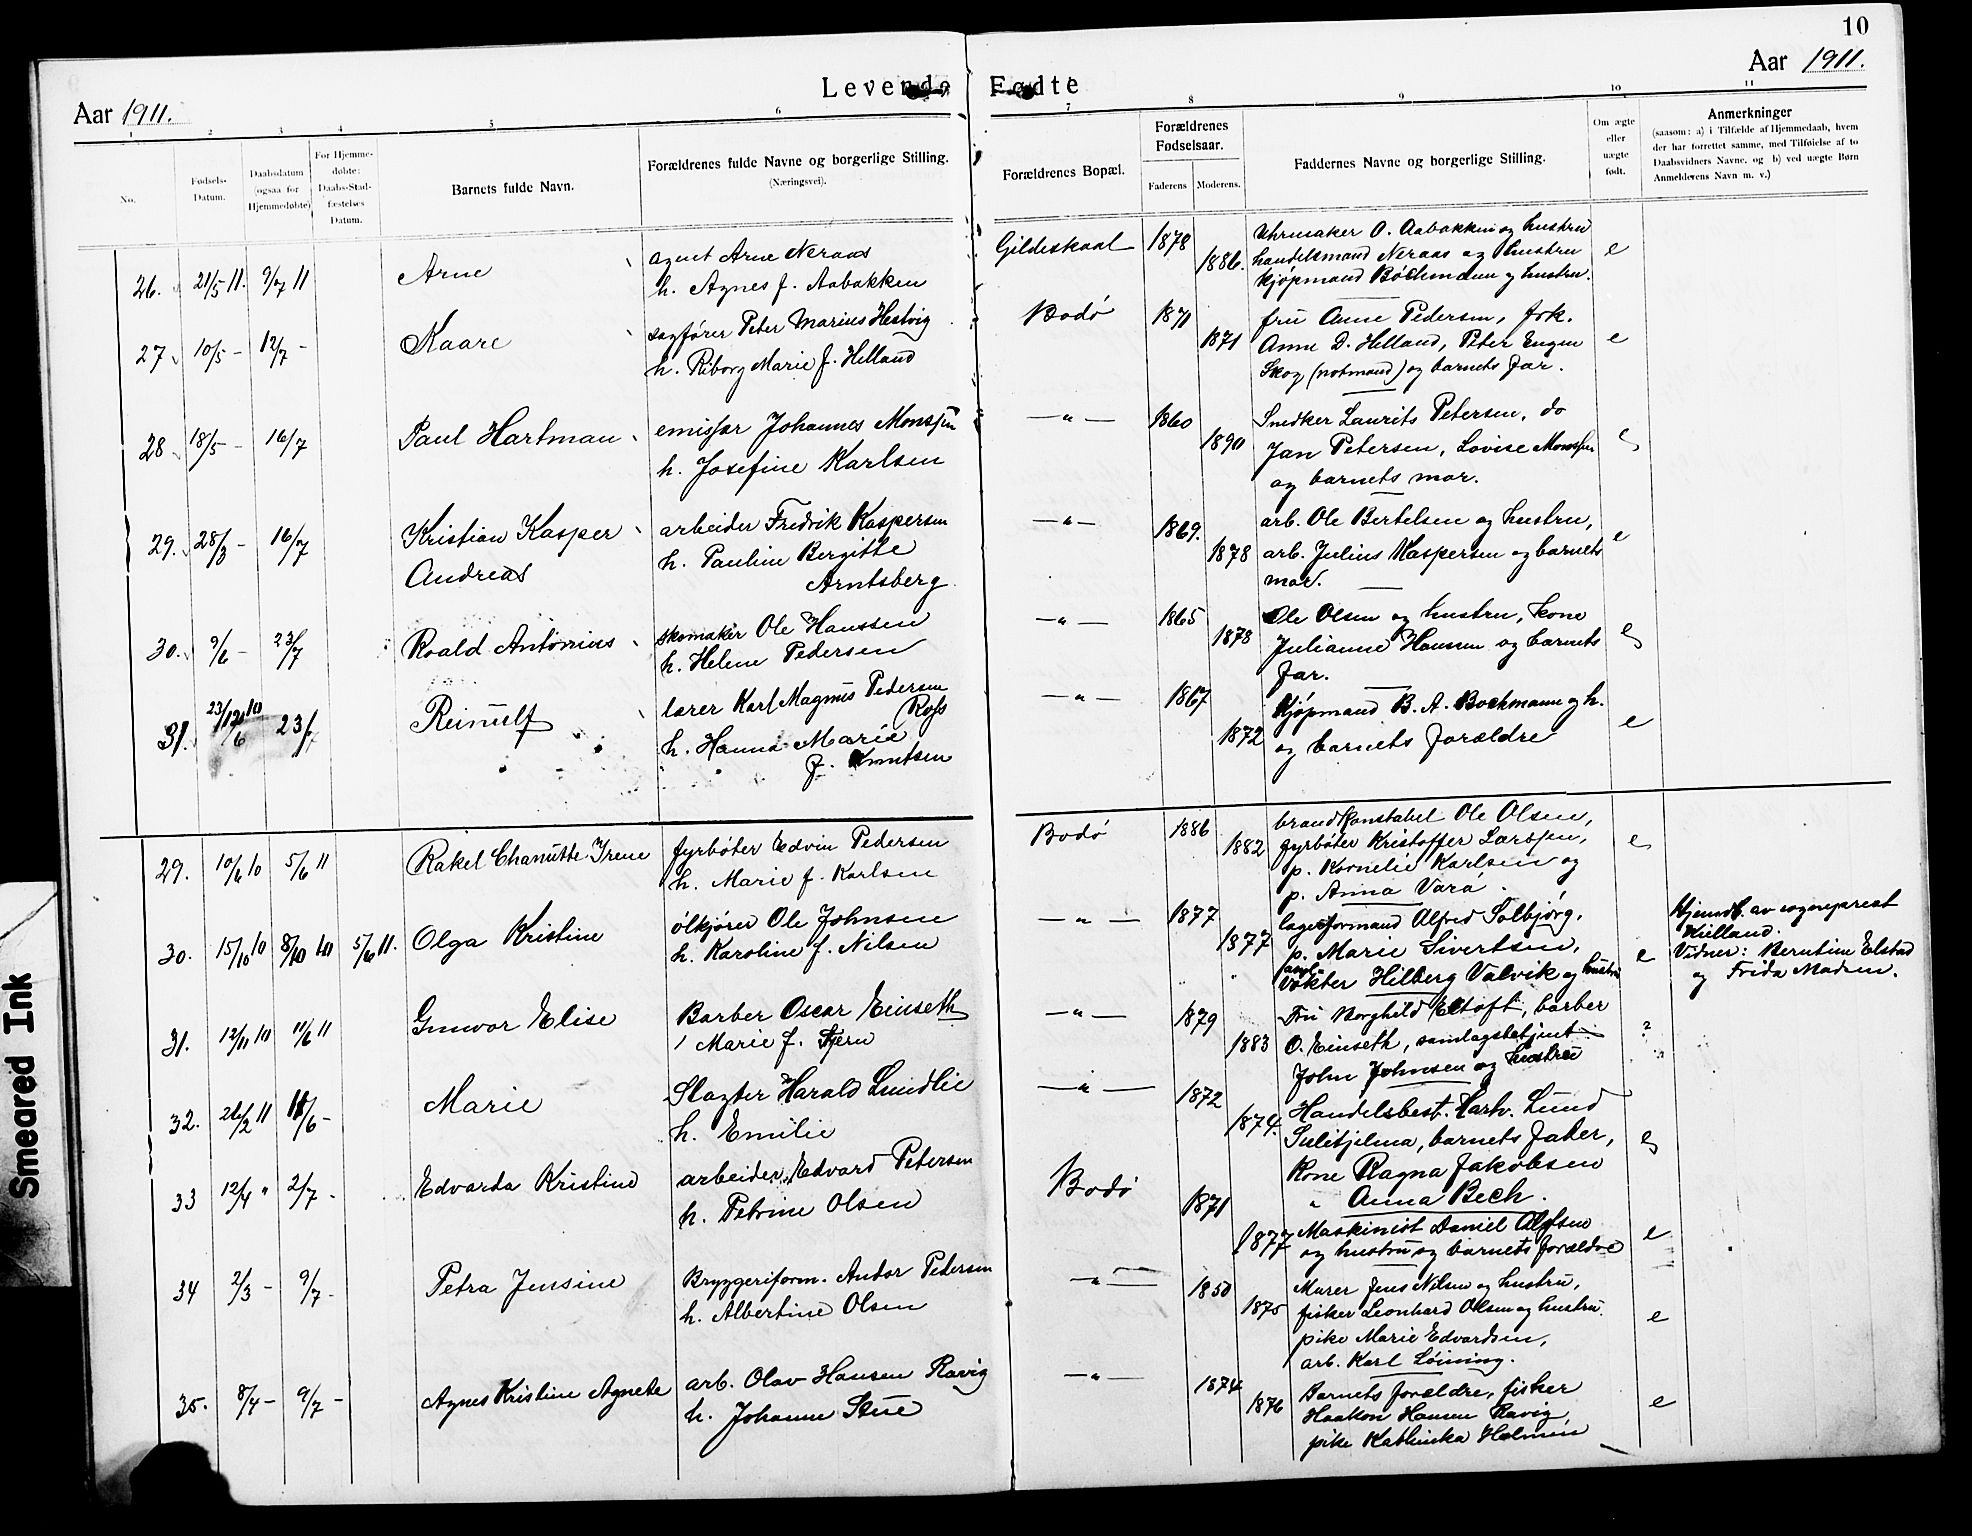 10
Levende Fødte
Aar 1911.
Aar 1911.
1 2 3 4 5 6 7 8 9 10 11
No.
Fødsels-
Datum.
Daabsdatum
(ogsaa for
Hjemmedøbte)
For Hjemme-
døbte:
Daabs-Stad-
fæstelses
Datum.
Barnets fulde Navn.
Forældrenes fulde Navne og borgerlige Stilling.
(Næringsvei).
Forældrenes Bopæl.
Forældrenes
Fødselsaar.
Faderens Moderens.
Faddernes Navne og borgerlige Stilling.
Om ægte
eller
uægte
født.
Anmerkninger
(saasom: a) i Tilfælde af Hjemmedaab, hvem
der har forrettet samme, med Tilføielse af to
Daabsvidners Navne, og b) ved uægte Børn
Anmelderens Navn m. v.)
26. 21/5 11. 9/7 11 Arne
agent Arne Neraas
h. Agnes f. Aabakken
Gildeskaal 1878 1886.
Uhrmaker O. Aabakken og hustru
handelsmand Neraas og hustru
kjøpmand Bochmann og hustru.
e
27 10/5 - 12/7 - Kaare
sagfører Peter Marius Hestvig
h. Riborg Marie f. Helland
Bodø 1870 1871
fru Anne Pedersen, frk.
Anne D. Helland, Peter Engen
Skog (notmand) og barnets far.
e
28 18/5 - 16/7 Paul Hartman
emissær Johannes Monssen
h. Josefine Karlsen
—"— 1860 1890
Snedker Laurits Petersen, do
Jan Petersen, Lovise Monssen
og barnets mor.
e
29. 28/3 - 16/7 Kristian Kasper
Andreas
arbeider Fredrik Kaspersen
h. Pauline Bergitte
Arntsberg
—"— 1869. 1878
arb. Ole Bertelsen og hustru,
arb. Julius Kaspersen og barnets
mor.
e
30. 9/6 - 23/7 Roald Antonius
skomaker Ole Hanssen
h. Helene Pedersen
—"— 1865 1878
Ole Olsen og hustru, kone
Julianne Hansen og barnets
far.
e
31. 23/7 Reinulf
lærer Karl Magnus Pedersen
Ross
h. Hanna Marie
f. Knutsen
—"— 1867 1872
Kjøpmand B. A. Bochmann og h.
og barnets forældre
e
29. 10/6 10 5/6 11 Rakel Chanutte Irene
fyrbøter Edvin Pedersen
h. Marie f. Karlsen
Bodø 1886 1882
brandkonstabel Ole Olsen,
fyrbøter Kristoffer Larssen,
p. Kornelie Karlsen og
p. Anna Vara.
e
30. 15/10 10 8/10 10 5/6 11. Olga Kristine
ølkjører Ole Johnsen
h. Karoline f. Nilsen
—"— 1877 1877
lagerformand Alfred Solbjørg,
p. Marie Sivertsen,
vokter Hilberg Valvik og hustru
e
Hjemdb. av sogneprest
Kielland.
Vidner: Berntine Elstad
og Frida Madsen.
31. 12/11 10 11/6 11 Gunvor Elise
Barber Oscar Einseth
Marie f. Fjern
—"— 1879 1883
Fru Borghild Eltoft, barber
O. Einseth, samlagsbetjent
John Johnsen og hustru
?
32. 26/2 11 11/6 - Marie
Slagter Harald Lundlie
h. Emilie
—"— 1872 1874.
Handelsbest. Hartv. Lund
Sulitjelma, barnets fader,
Kone Ragna Jakobsen
" Anna Bech.
e
33 12/4 " 2/7 - Edvarda Kristine
arbeider Edvard Petersen
h. Petrine Olsen
Bodø 1871 1877
Maskinist Daniel Olsen
og hustru og barnets forældre
e
34 2/3 - 9/7 - Petra Jensine
Bryggeriform. Andor Pedersen
h. Albertine Olsen
—"— 1850 1875
Murer Jens Nilsen og hustru,
fisker Leonhard Olsen og hustru.
pike Marie Edvardsen,
arb. Karl Løining.
e
35. 8/4 - 9/7 - Agnes Kristine Agnete
arb. Olav Hansen Ravig
h. Johanne Stue
—"— 1874 1876
Barnets forældre, fisker
Haakon Hansen Ravig,
pike Kathinka Holmen
e
Smeared Ink